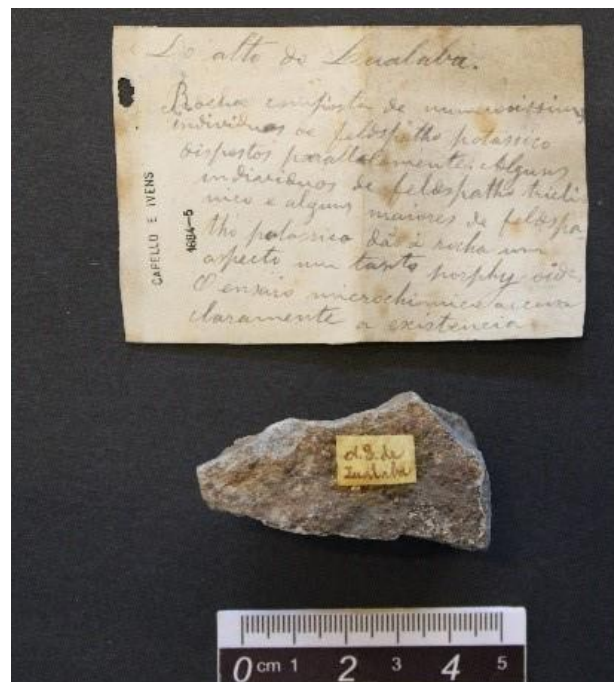 Do alto do Lualaba.
Rocha composta de numerosissimos
individuos de feldspatho potassico
dispostos parallelamente. Alguns
individuos de feldspatho tricli-
nico e alguns maiores de feldspa-
tho potassico dão á rocha um
aspecto um tanto porphyroide.
O ensaio microchimico accusa
claramente a existencia
CAPELLO E IVENS
1884-5
de
Lualaba
0 cm 1 2 3 4 5